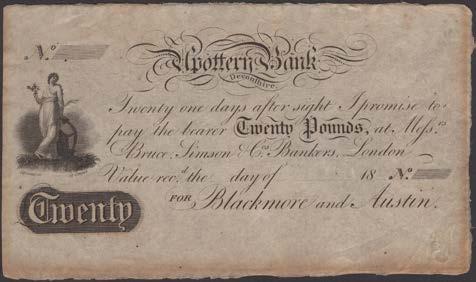 No.
Upottery Bank
Devonshire.
Twenty one days after sight I promise to
pay the bearer Twenty Pounds, at Messrs
Bruce, Simson & Cos. Bankers, London
Value recd. the day of 18 No.
Twenty
FOR Blackmore and Austin.